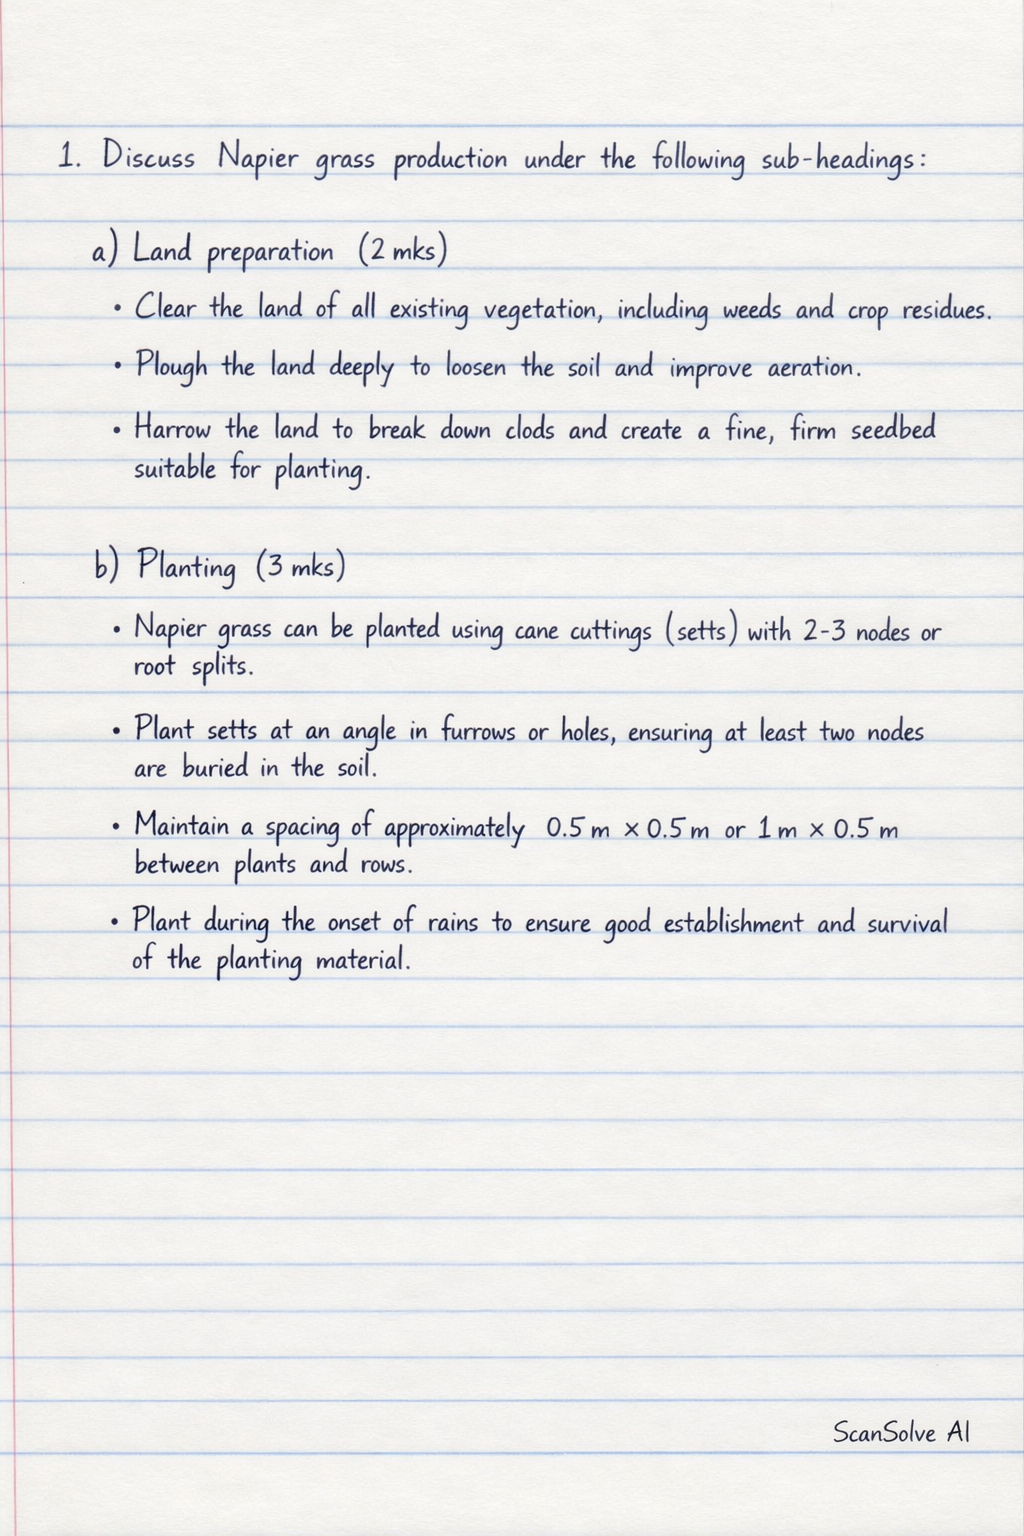 1. Discuss Napier grass production under the following sub-headings:
a) Land preparation (2 mks)
• Clear the land of all existing vegetation, including weeds and crop residues.
• Plough the land deeply to loosen the soil and improve aeration.
• Harrow the land to break down clods and create a fine, firm seedbed
suitable for planting.
b) Planting (3 mks)
• Napier grass can be planted using cane cuttings (setts) with 2-3 nodes or
root splits.
• Plant setts at an angle in furrows or holes, ensuring at least two nodes
are buried in the soil.
• Maintain a spacing of approximately 0.5 m × 0.5 m or 1 m × 0.5 m
between plants and rows.
• Plant during the onset of rains to ensure good establishment and survival
of the planting material.
ScanSolve AI